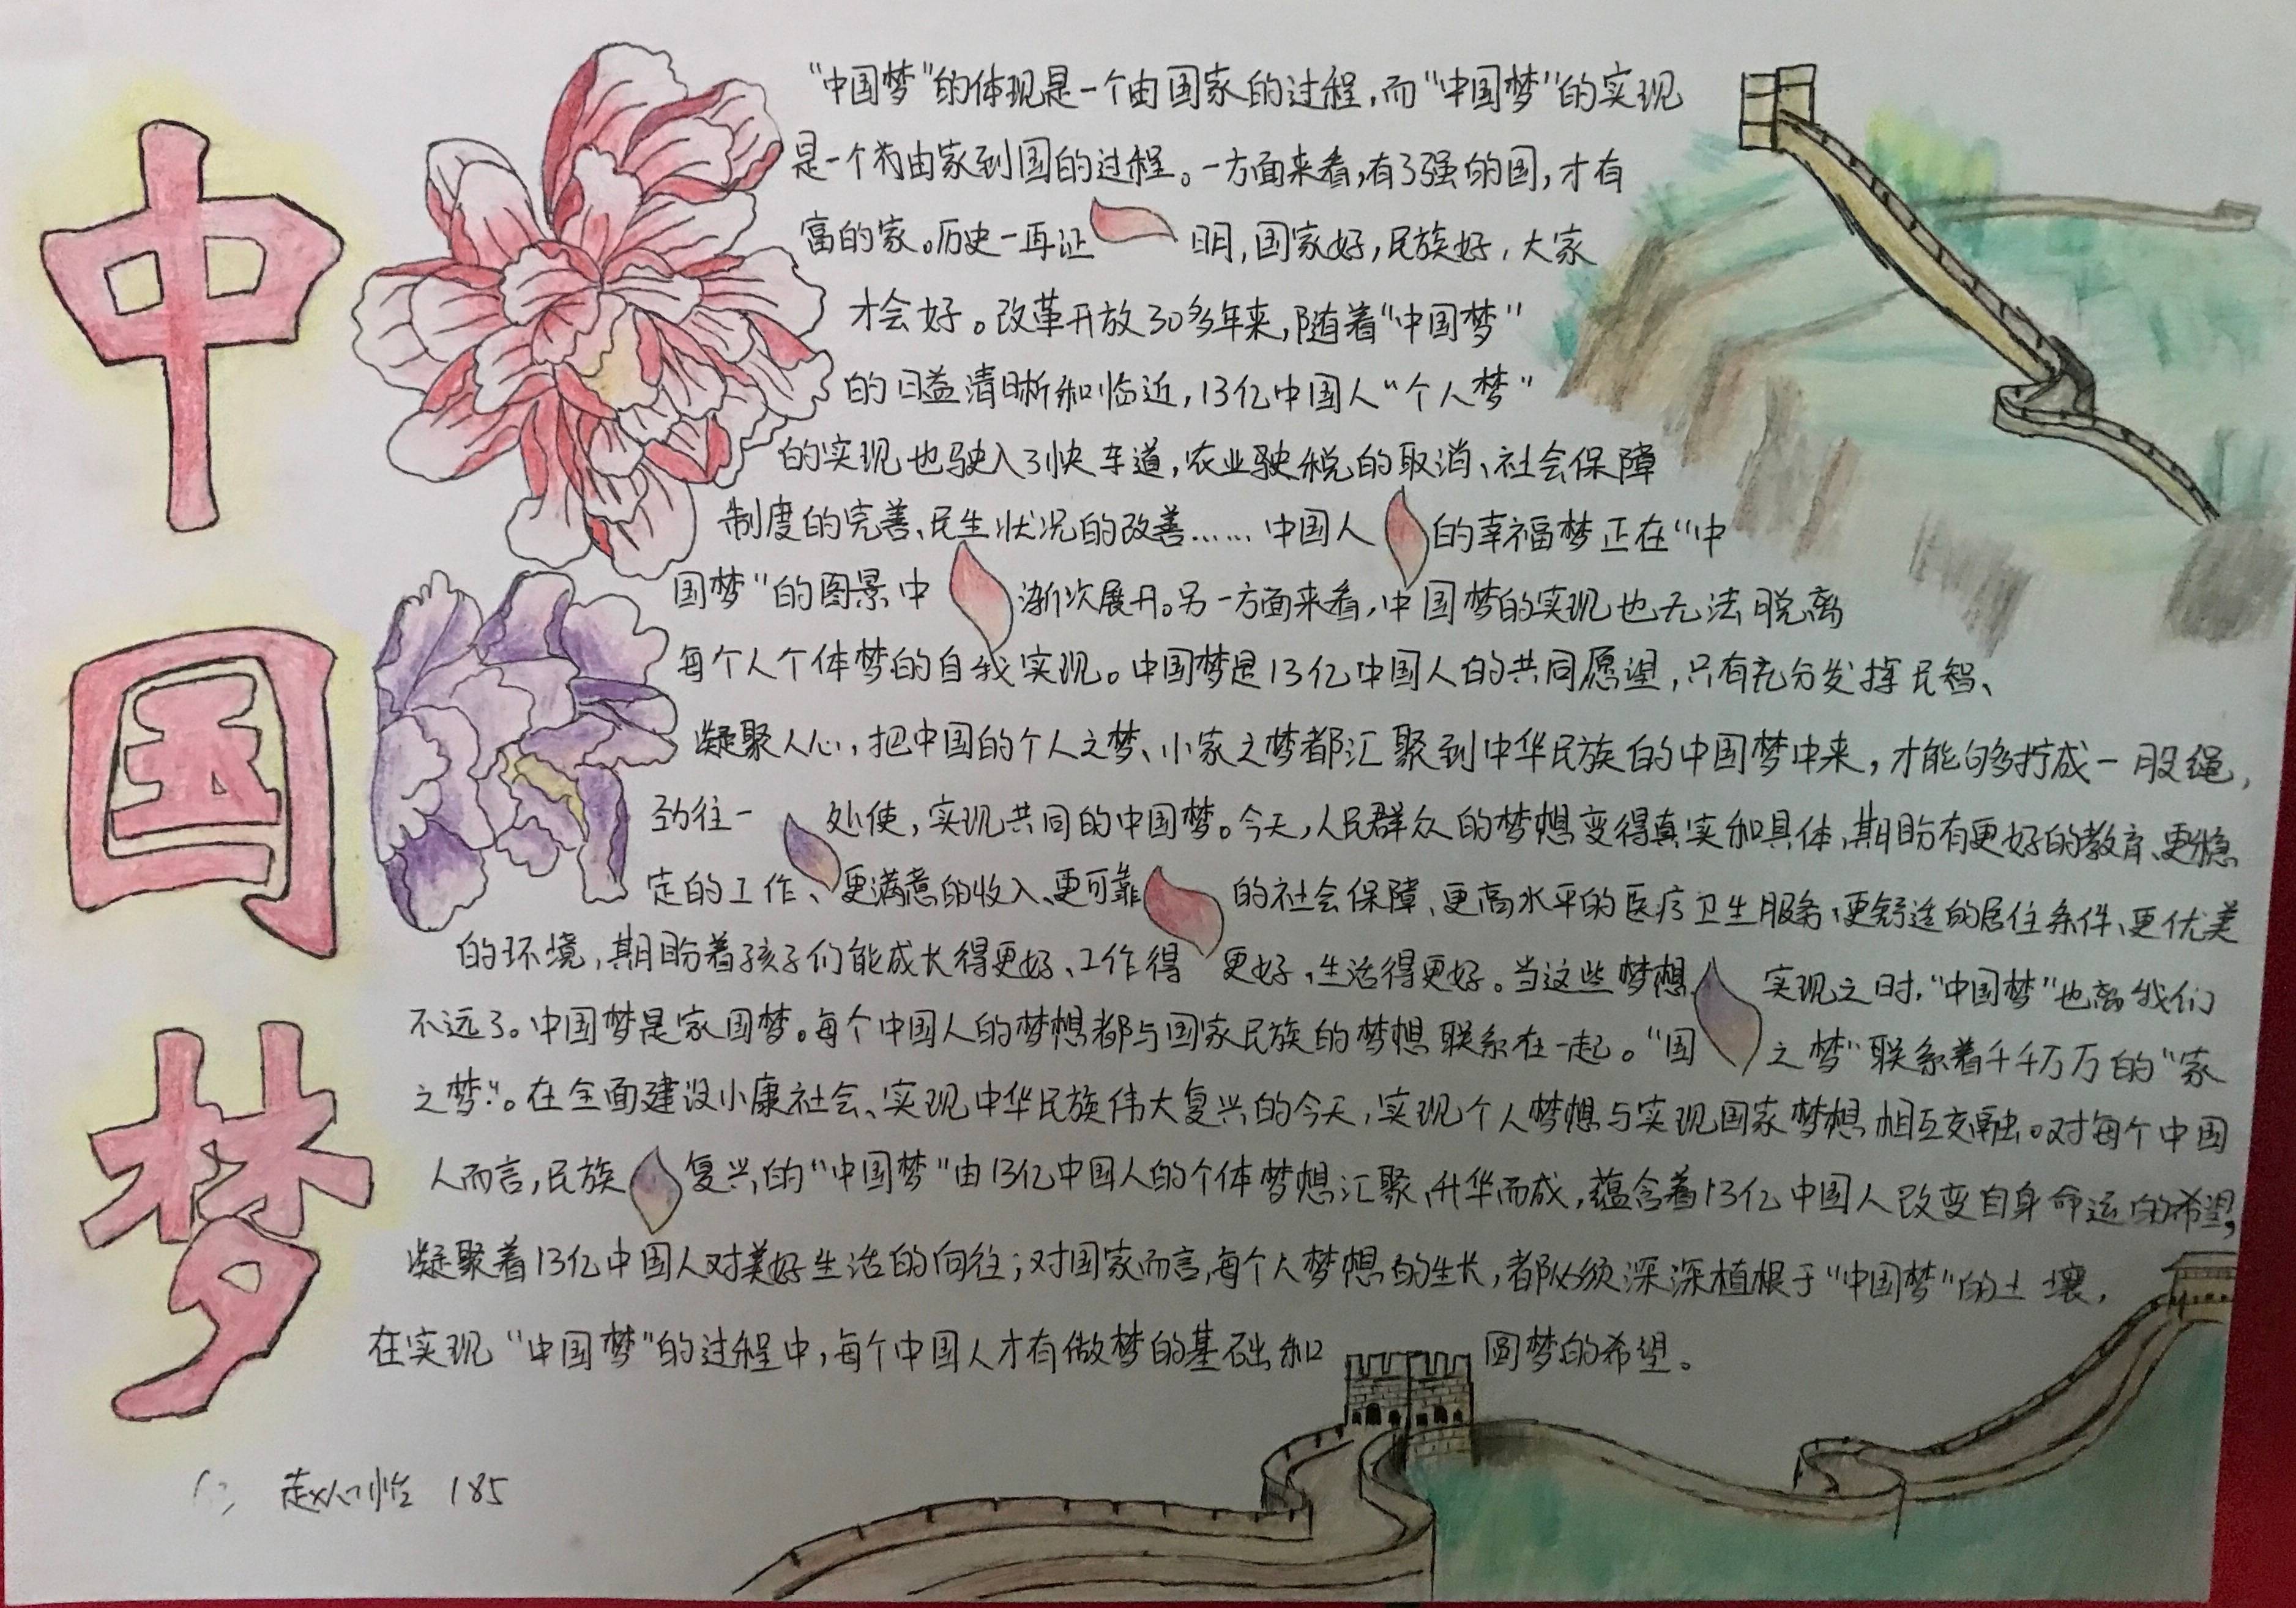 中国梦
"中国梦"的体现是一个由国家的过程，而"中国梦"的实现
是一个为由家到国的过程。一方面来看，有了强的国，才有
富的家。历史一再证明，国家好，民族好，大家
才会好。改革开放30多年来，随着"中国梦"
的日益清晰和临近，13亿中国人"个人梦"
的实现也驶入了快车道，农业驶税的取消、社会保障
制度的完善、民生状况的改善……中国人的幸福梦正在"中
国梦"的图景中渐次展开。另一方面来看，中国梦的实现也无法脱离
每个人个体梦的自我实现。中国梦是13亿中国人的共同愿望，只有充分发挥民智、
凝聚人心，把中国的个人之梦、小家之梦都汇聚到中华民族的中国梦中来，才能够拧成一股绳，
劲往一处使，实现共同的中国梦。今天，人民群众的梦想变得真实和具体，期盼有更好的教育、更稳
定的工作、更满意的收入、更可靠的社会保障、更高水平的医疗卫生服务、更舒适的居住条件、更优美
的环境，期盼着孩子们能成长得更好、工作得更好，生活得更好。当这些梦想实现之日时，"中国梦"也离我们
不远了。中国梦是家国梦。每个中国人的梦想都与国家民族的梦想联系在一起。"国之梦"联系着千千万万的"家
之梦"。在全面建设小康社会、实现中华民族伟大复兴的今天，实现个人梦想与实现国家梦想相互交融。对每个中国
人而言，民族复兴的"中国梦"由13亿中国人的个体梦想汇聚、升华而成，蕴含着13亿中国人改变自身命运的希望，
凝聚着13亿中国人对美好生活的向往；对国家而言，每个人梦想的生长，都必须深深植根于"中国梦"的土壤，
在实现"中国梦"的过程中，每个中国人才有做梦的基础和圆梦的希望。
赵 怡 185